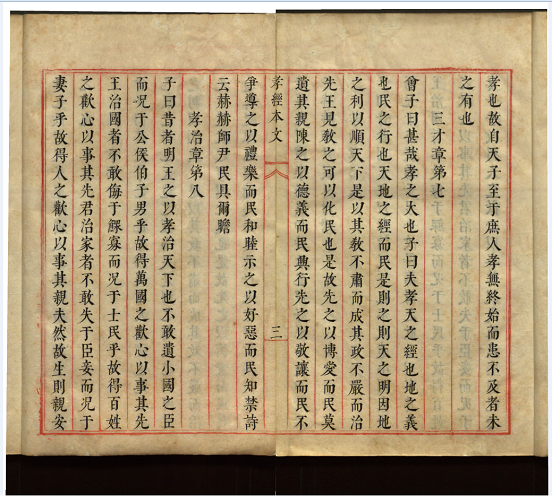 孝也故自天子至于庶人孝無終始而患不及者未
之有也
三才章第七
曾子曰甚哉孝之大也子曰夫孝天之經也地之義
也民之行也天地之經而民是則之則天之明因地
之利以順天下是以其教不肅而成其政不嚴而治
先王見教之可以化民也是故先之以博愛而民莫
遺其親陳之以德義而民興行先之以敬讓而民不
孝經本文
三
爭導之以禮樂而民和睦示之以好惡而民知禁詩
云赫赫師尹民具爾瞻
孝治章第八
子曰昔者明王之以孝治天下也不敢遺小國之臣
而况于公侯伯子男乎故得萬國之歡心以事其先
王治國者不敢侮于鰥寡而况于士民乎故得百姓
之歡心以事其先君治家者不敢失于臣妾而况于
妻子乎故得人之歡心以事其親夫然故生則親安